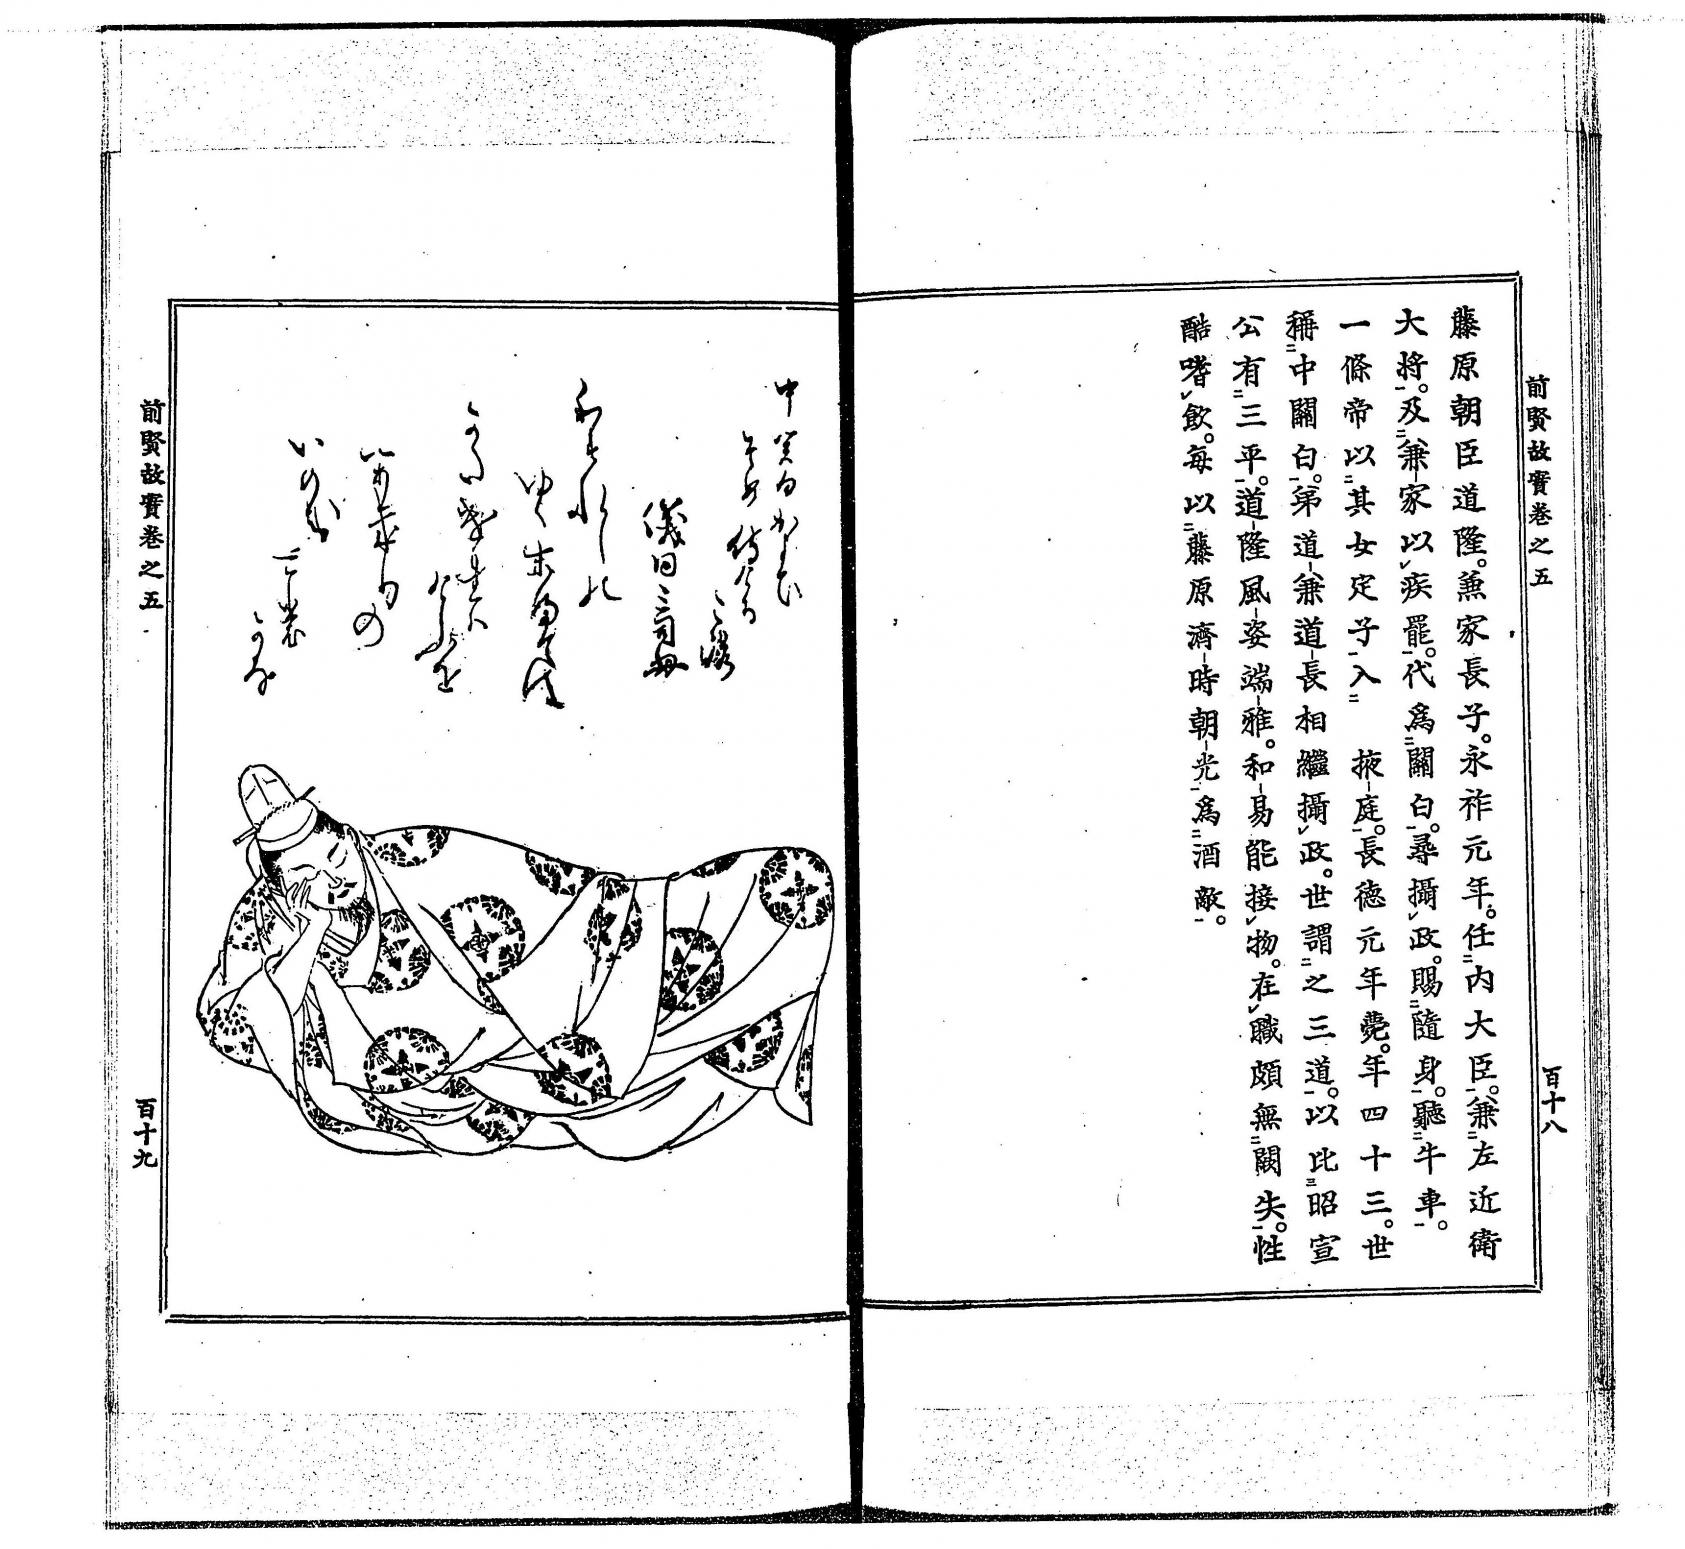 前賢故實卷之五
百十八
藤原朝臣道隆。兼家長子。永祚元年。任内大臣。兼左近衛
大將。及兼家以疾罷。代爲關白。尋攝政。賜隨身。聽牛車。
一條帝以其女定子入　掖庭。長德元年薨。年四十三。世
稱中關白。弟道兼道長相繼攝政。世謂之三道。以比昭宣
公有三平。道隆風姿端雅。和易能接物。在職頗無闕失。性
酷嗜飲。每以藤原濟時朝光爲酒敵。
中関白かよひ
そめ侍ける
ころ
儀同三司母
わすれしの
ゆく末まては
かたけれは
けふを
かきりの
いのち
前賢故實卷之五
百十九